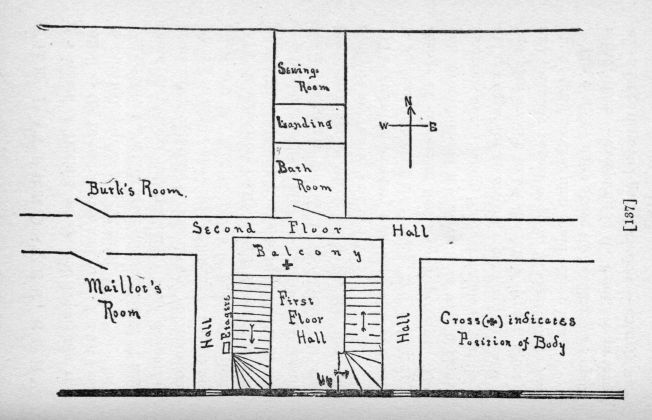 Sewing
Room
Landing
Bath
Room
N
W E
Burk's Room.
Second Floor Hall
Balcony
Maillot's
Room
Hall
Etagere
First
Floor
Hall
Hall
Up
Cross(+) indicates
Position of Body
[137]